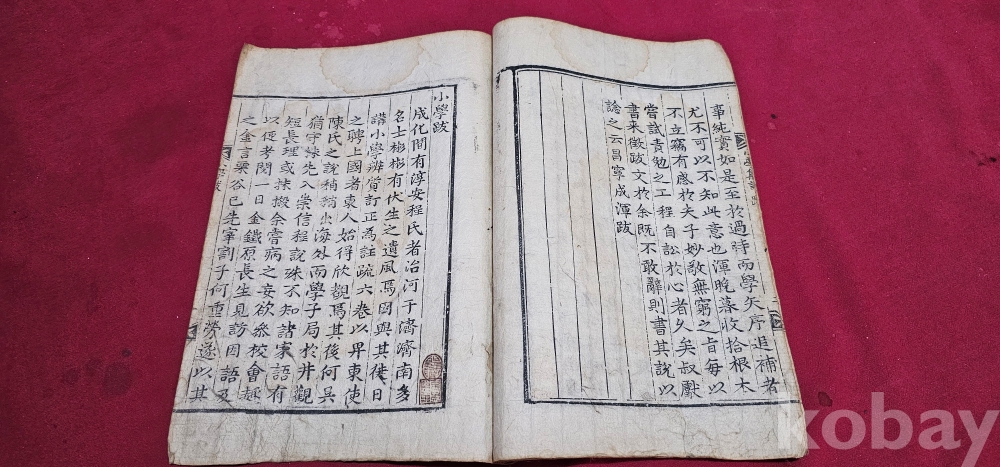 事純實如是至於過時而學失序追補者
尤不可以不知此意也渾晚暮收拾根本
不立竊有感於夫子妙敬無窮之旨每以
嘗試責勉之工程自訟於心者久矣叔獻
書来徵跋文於余既不敢辭則書其說以
諗之云昌寧成渾跋
小學跋
成化間有淳安程氏者治河于濟濟南多
名士彬彬有伏生之遺風焉因與其徒日
講小學辨質訂正為註疏六卷以畀東使
之聘上國者東人始得欣觀焉其後何吳
陳氏之說稍稍出海外而學子局於井觀
猶守株先入崇信程說殊不知諸家語有
短長理或抉擬余嘗病之妄欲叅校會趣
以便考閱一日金鐵原長生見訪因語及
之金言栗谷已先宰割子何重勞遂以其
kobay